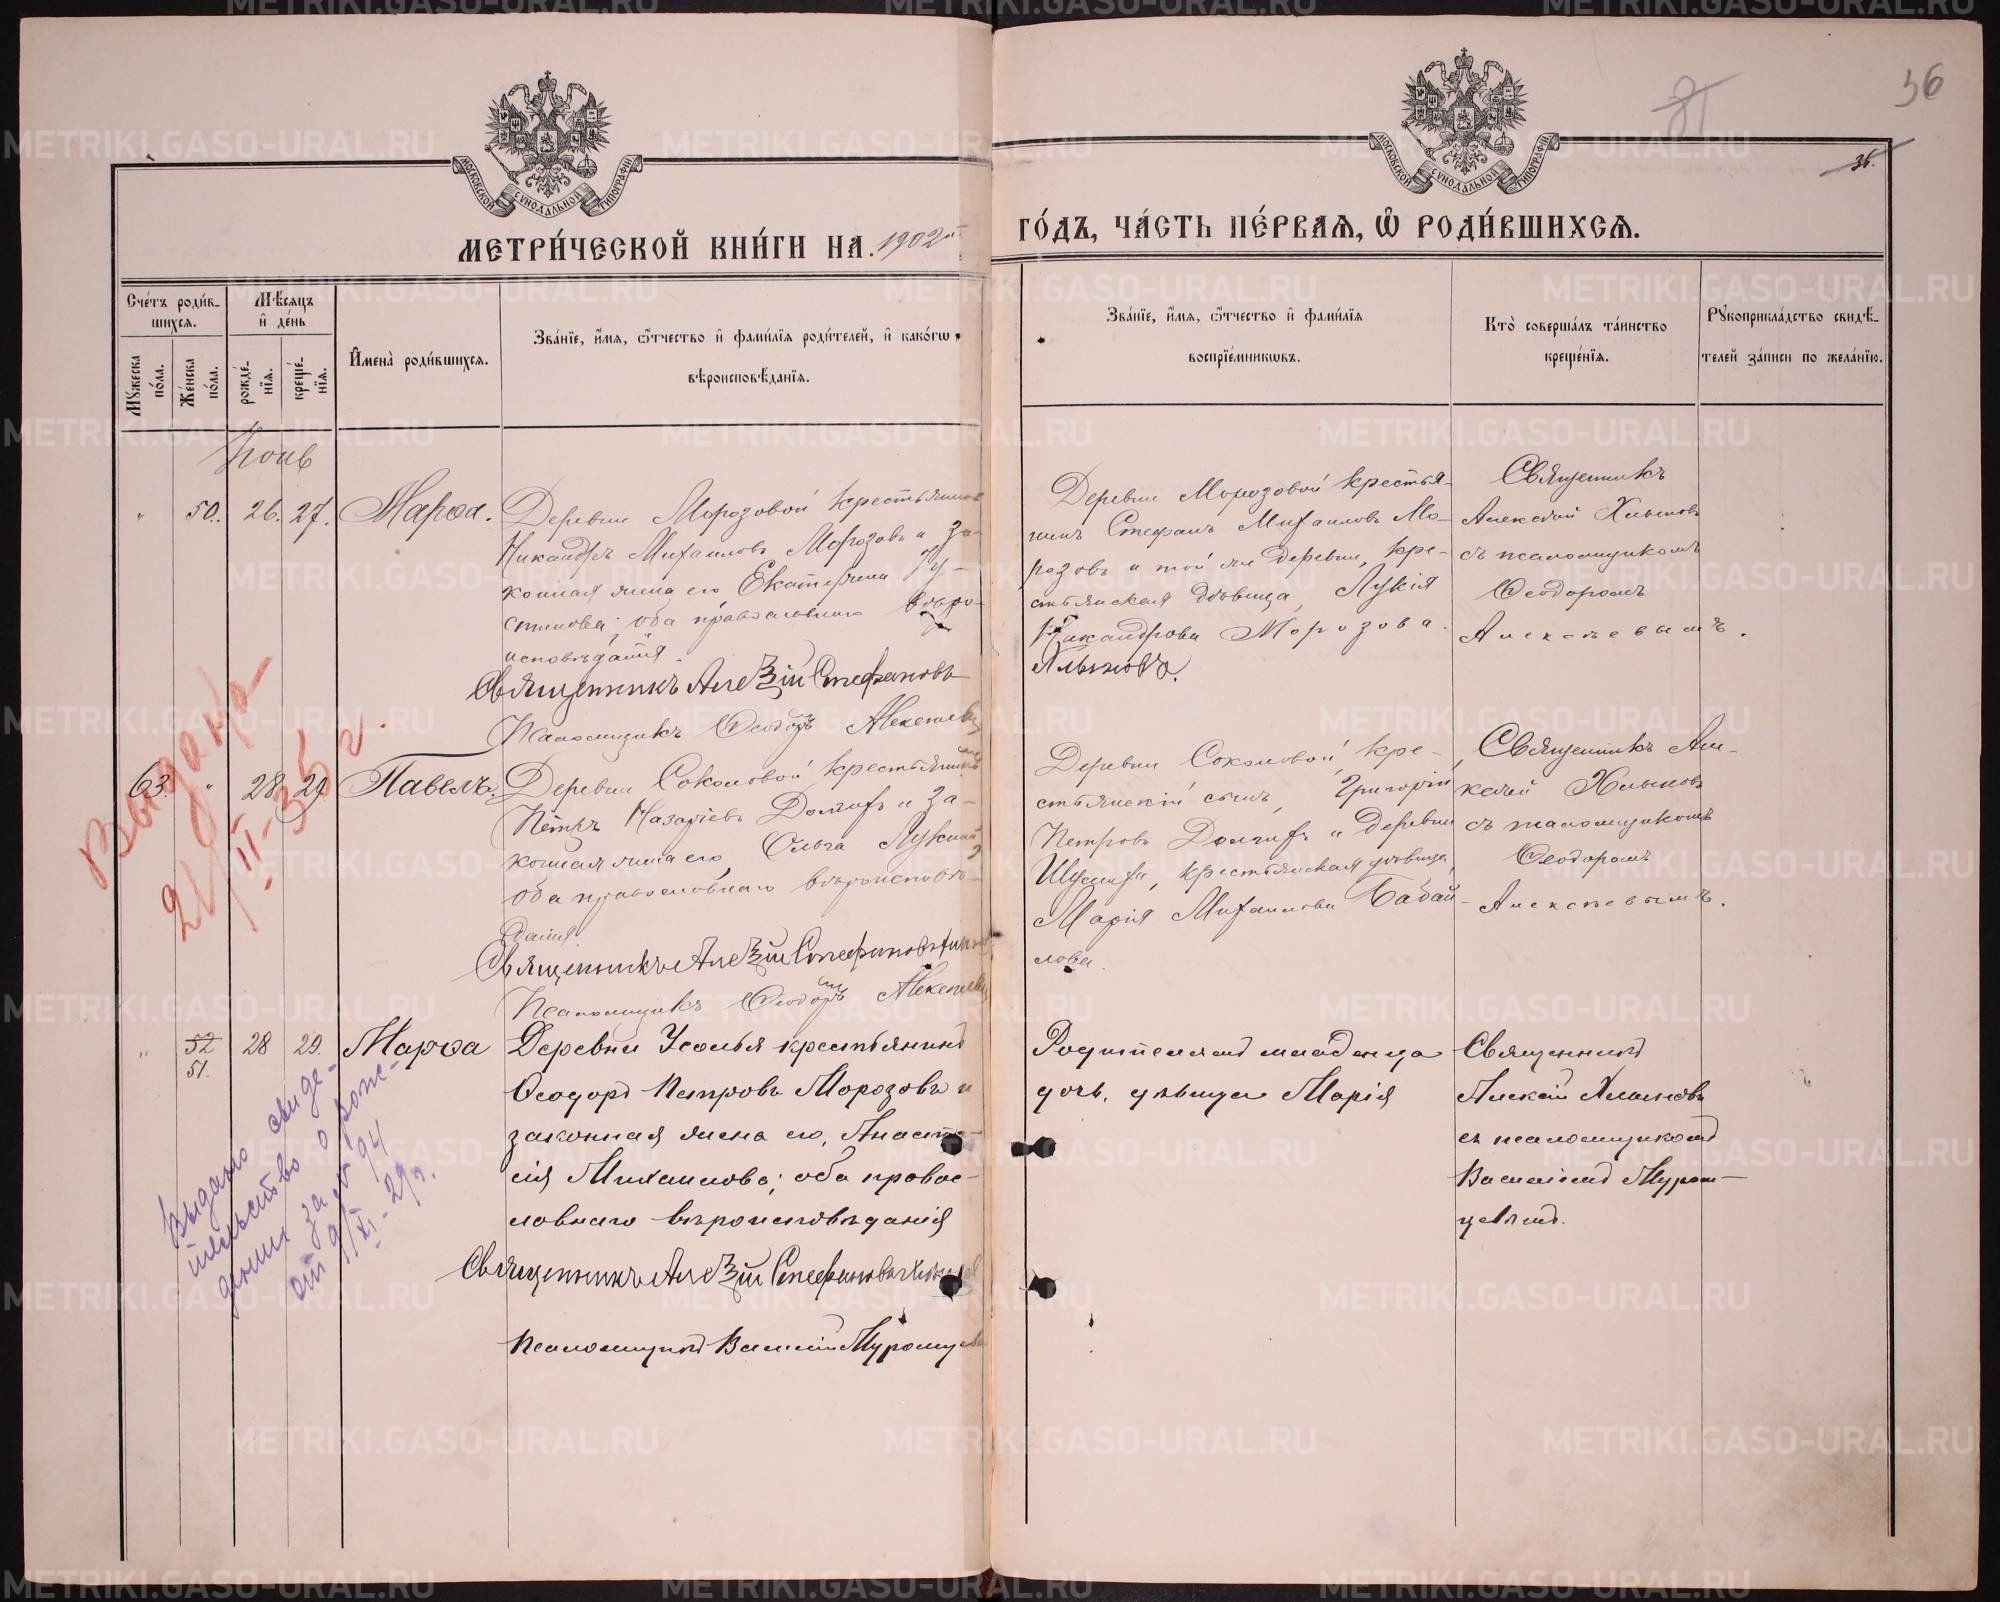 МЕТРИ́ЧЕСКОЙ КНИ́ГИ НА 1902й
ГО́ДЪ, ЧА́СТЬ ПЕ́РВАЯ, Ѡ РОДИ́ВШИХСЯ.
36
31
36.
МОСКОВСКОЙ СѴНОДАЛЬНОЙ ТИПОГРАФІИ
МОСКОВСКОЙ СѴНОДАЛЬНОЙ ТИПОГРАФІИ
Сче́тъ роди́в-
шихся.
Мѣ́сяцъ
и҆ де́нь
Му́жеска по́ла.
Же́нска по́ла.
рожде́-нїя.
креще́-нїя.
И҆мена̀ роди́вшихся.
Зва́нїе, и҆́мя, ѻ҆́тчество и҆ фами́лїя роди́телей, и҆ како́гѡ
вѣроисповѣ́данїя.
Зва́нїе, и҆́мя, ѻ҆́тчество и҆ фами́лїя
воспрїе́мникѡвъ.
Кто̀ соверша́лъ та́инство
креще́нїя.
Рꙋкоприкла́дство свидѣ́-
телей за́писи по жела́нїю.
Іюнь
" 50. 26. 27. Марѳа.
Деревни Морозовой крестьянинъ
Никандръ Михаиловъ Морозовъ и за-
конная жена его Екатерина
оба православнаго вѣро-
исповѣданія.
Священникъ Алексій Стефановъ
Псаломщикъ Ѳеодоръ Алексѣевъ
Деревни Морозовой крестья-
нинъ Стефанъ Михаиловъ Мо-
розовъ и той же деревни, кре-
стьянская дѣвица, Лукія
Никандрова Морозова.
Хлыновъ.
Священникъ
Алексей Хлыновъ
съ псаломщикомъ
Ѳеодоромъ
Алексѣевымъ.
63. " 28 29 Павелъ.
Деревни Соколовой крестьянинъ
Петръ Назаріевъ Долгихъ и за-
конная жена его, Ольга
оба православнаго вѣроисповѣ-
данія.
Священникъ Алексій Стефановъ Хлыновъ
Псаломщикъ Ѳеодоръ Алексѣевъ
Деревни Соколовой, кре-
стьянскій сынъ, Григорій
Петровъ Долгихъ и деревни
крестьянская дѣвица,
Марія Михаилова Бабай-
лова.
Священникъ Але-
ксей Хлыновъ
съ псаломщикомъ
Ѳеодоромъ
Алексѣевымъ.
Выдана
21/II-35 г.
" 52 28 29. Марѳа
51.
Деревни Усолья крестьянинъ
Ѳеодоръ Петровъ Морозовъ и
законная жена его, Анаста-
сія Михаилова; оба правос-
лавнаго вѣроисповѣданія
Священникъ Алексій Стефановъ Хлыновъ
Псаломщикъ Василій Муромцевъ
Родителями младенца
дочь, дѣвица Марія
Священникъ
Алексій Хлыновъ
съ псаломщикомъ
Василіемъ Муром-
цевымъ.
Выдано свиде-
тельство о рож-
дении за № 94
от 9/XI-29 г.
METRIKI.GASO-URAL.RU